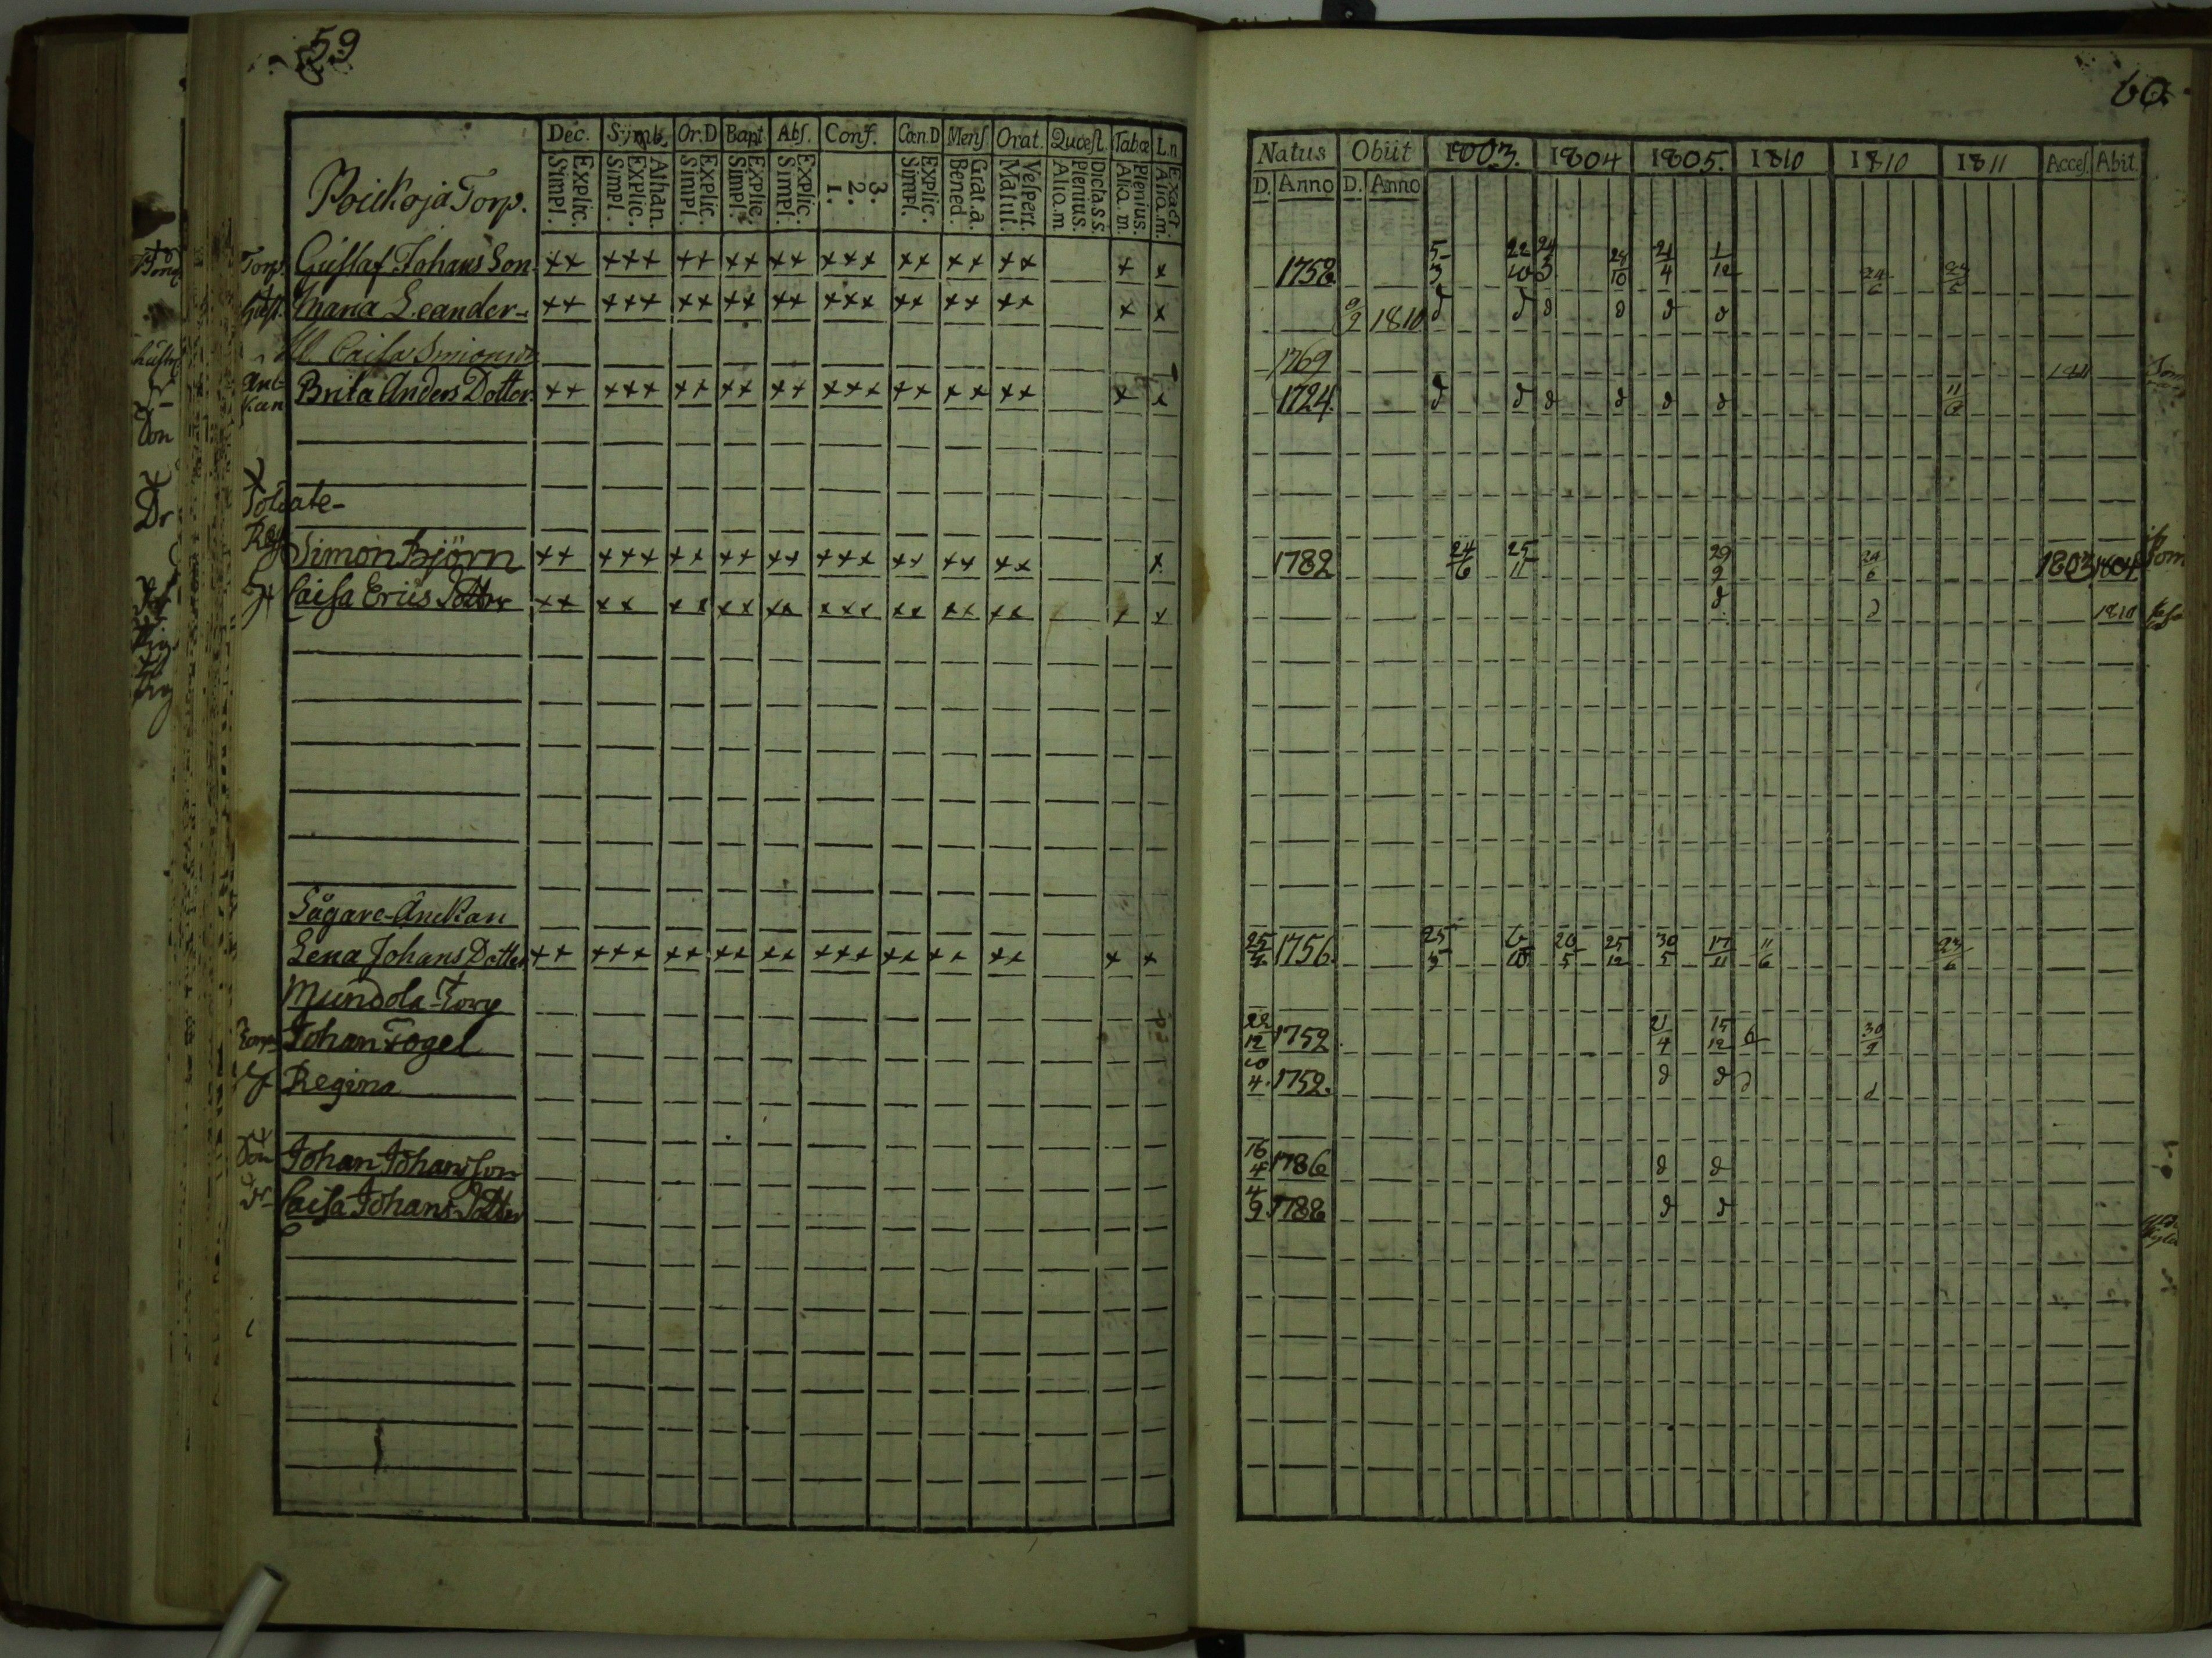 59
Dec. Symb. Or.D Bapt. Abſ. Conf. Cœn.D Menſ. Orat. Quœſt. Tabœ L.n
Explic. Simpl. Athan. Explic. Simpl. Explic. Simpl. Explic. Simpl. Explic. Simpl. 3. 2. 1. Explic. Simpl. Grat.a. Bened. Veſpert. Matut. Dicta.s.s. Plenius. Aliq.m Plenius. Aliq.m. Exact. Aliq.m.
Torp.
Torp. Gustaf Johans Son ×× ××× ×× ×× ×× ××× ×× ×× ×× × ×
Hust. Maria Leander ×× ××× ×× ×× ×× ××× ×× ×× ×× × ×
Caisa
Brita Anders Dotter ×× ××× ×× ×× ×× ××× ×× ×× ×× × ×
Soldate-
Simon Björn ×× ××× ×× ×× ×× ××× ×× ×× ×× ×
Caisa Erics Dotter ×× ×× ×× ×× ×× ××× ×× ×× ×× × ×
Sågare-Änckan
Lena Johans Dotter ×× ××× ×× ×× ×× ××× ×× ×× ×× × ×
Mundola-Torp
Torp Johan Fogel
Regina
Son Johan Johansson
Dr Caisa Johans Dotter
60
Natus Obiit 1803. 1804 1805. 1810 1810 1811 Acceſ. Abit.
D. Anno D. Anno
1758 5/3 22/10 24/3 28/10 21/4 1/12 24/6
9/9 1810 d d d d d d
1769 1811
1724 d d d d d d 11/6
1782 24/6 25/11 29/9 24/6 1803 1804
d d 1810
25/4 1756. 25/3 6/10 20/5 25/12 30/5 17/11 11/6 23/6
22/12 1752 21/4 15/12 6 30/9
10/4 1752. d d d d
16/4 1786 d d
4/9 1788 d d